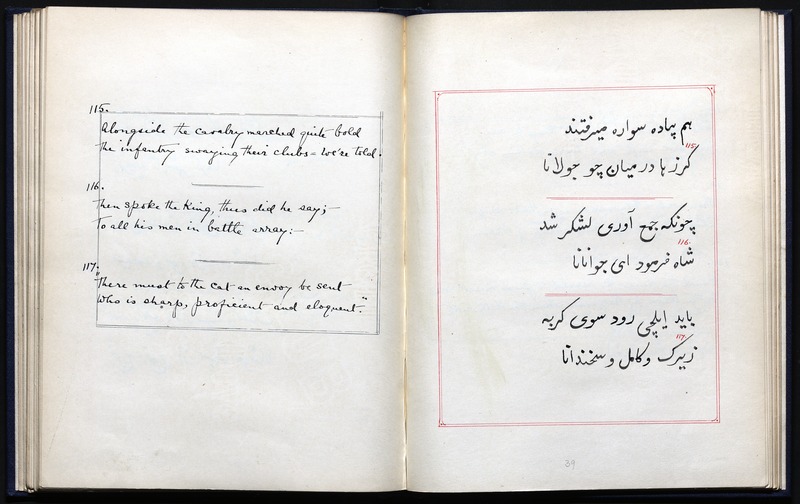 115.
Alongside the cavalry marched quite bold
the infantry swaying their clubs = We're told.
116.
Then spoke the King, thus did he say;
To all his men in battle array:-
117.
"There must to the cat an envoy be sent
Who is sharp, proficient and eloquent."
هم پیاده سواره میرفتند
115
گرزها در میان چو جولانا
چونکه جمع آوری لشکر شد
116.
شاه فرمود ای جوانانا
باید ایلچی رود سوی گربه
117
زیرک و کامل و سخندانا
39